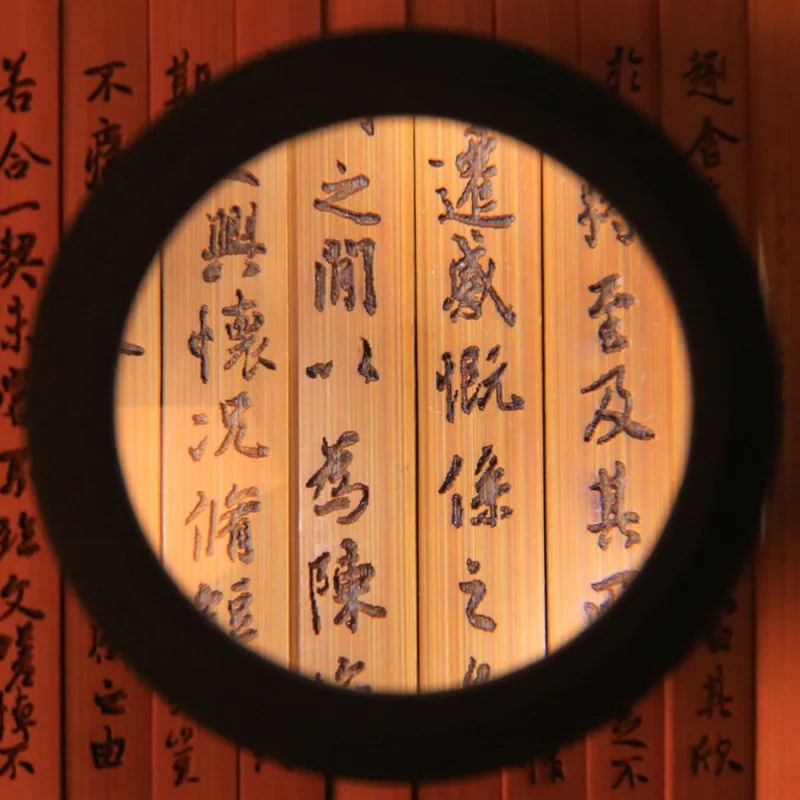 趣舍其欣
於
至及其
不
遷感慨係之
之間以為陳
興懷況脩短
期豈
不痛之由
若合一契未嘗不臨文嗟悼不